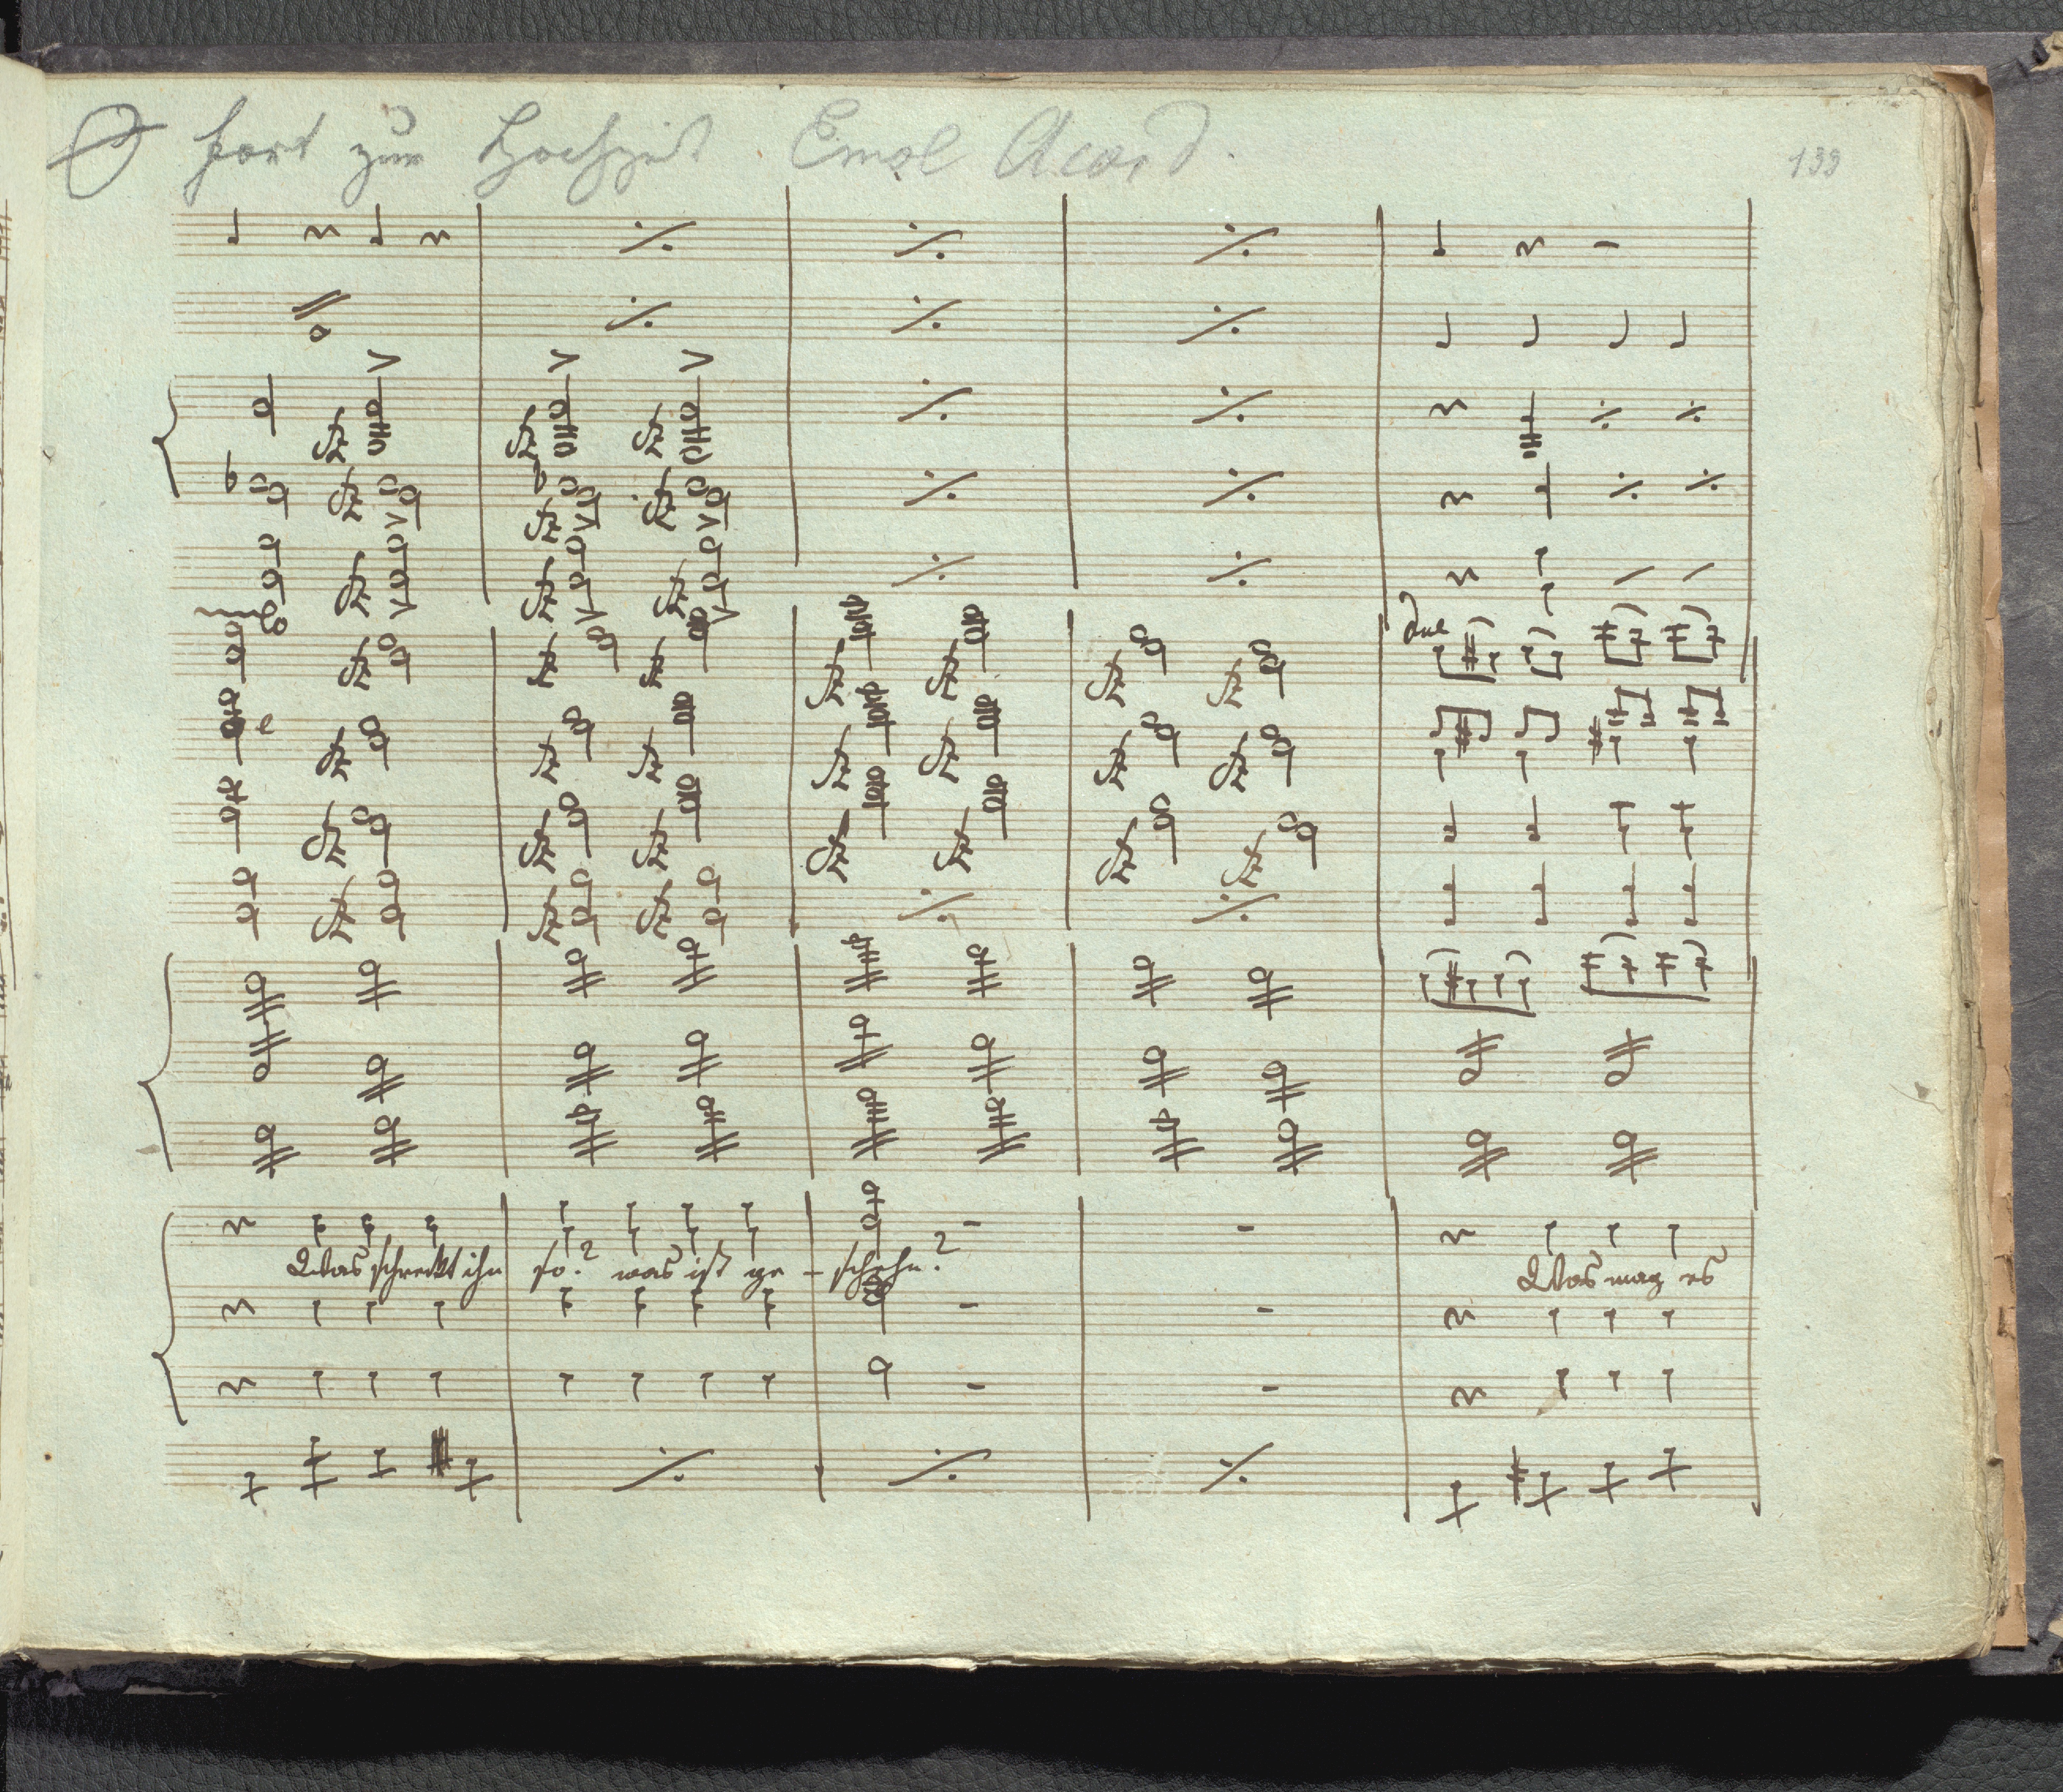 O fort zur Hochzeit Emol Acord.
199
dol
Was schreckt ihn so? was ist ge - schehn? Was mag es